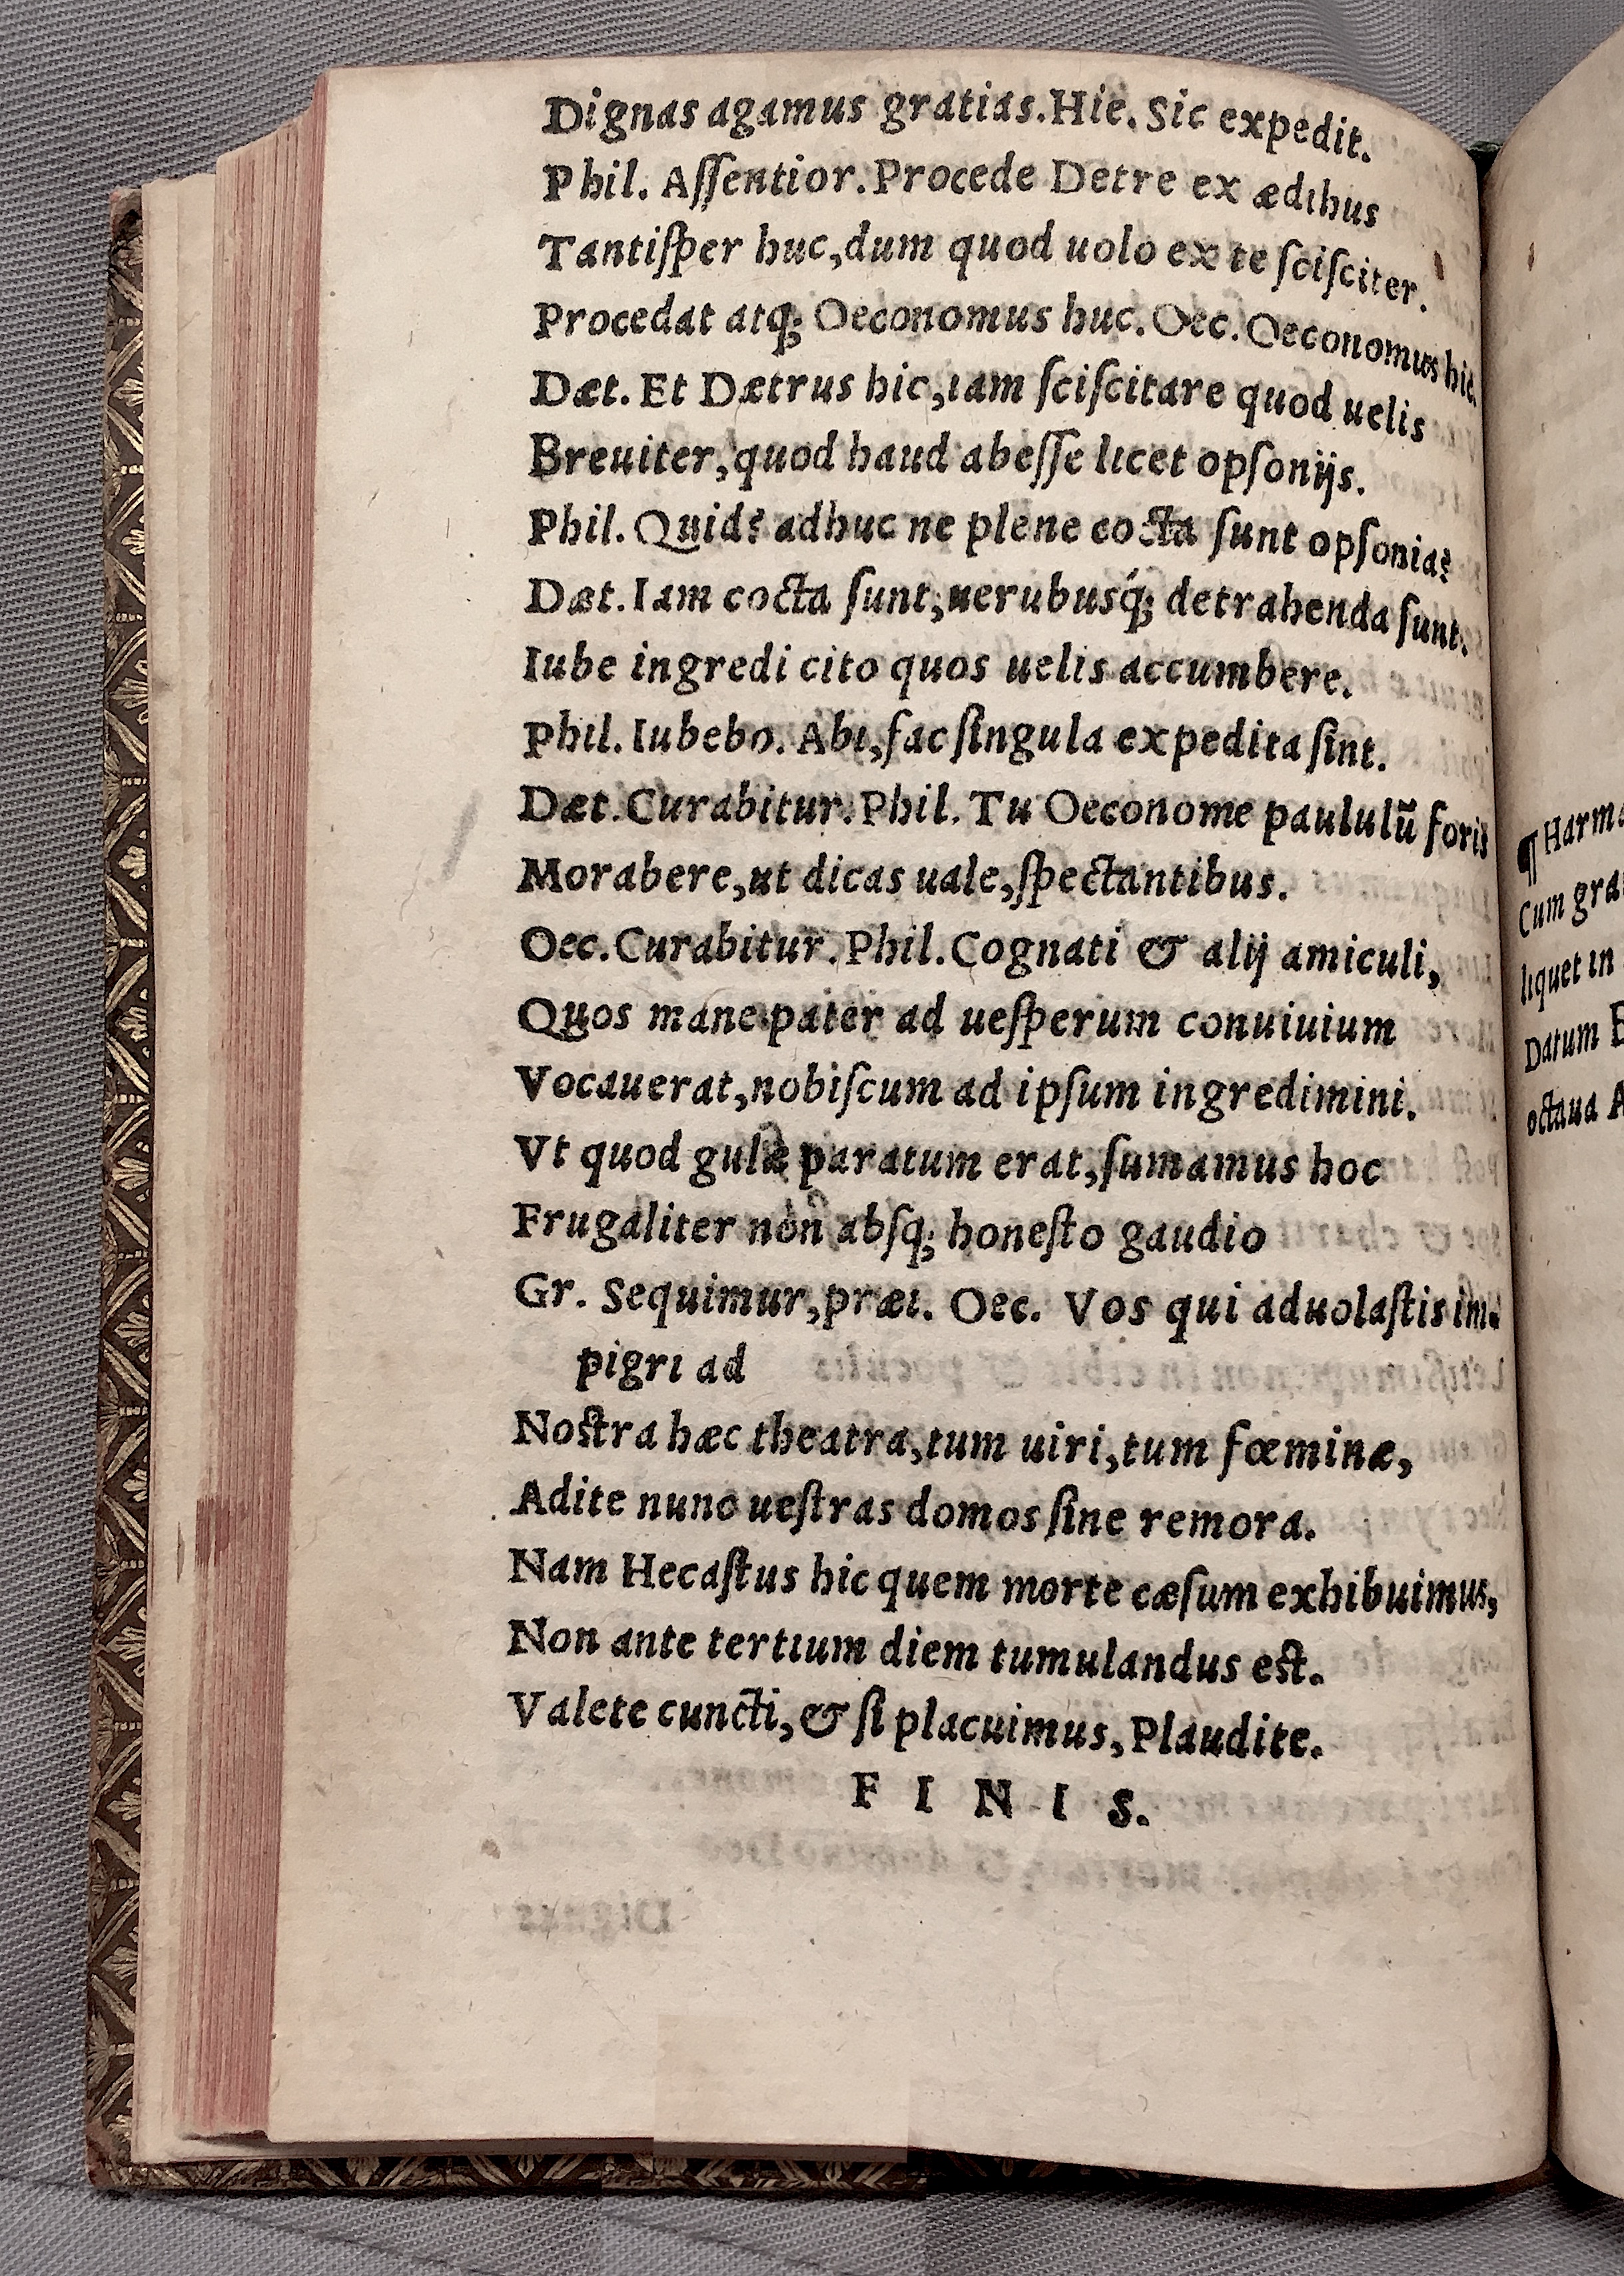 Dignas agamus gratias. Hie. Sic expedit.
Phil. Aſſentior. Procede Detre ex ædibus
Tantiſper huc, dum quod uolo ex te ſciſciter.
Procedat atq; Oeconomus huc. Oec. Oeconomus hic.
Dæt. Et Dætrus hic, iam ſciſcitare quod uelis
Breuiter, quod haud abeſſe licet opſonijs.
Phil. Quid? adhuc ne plene cocta sunt opſonia?
Dæt. Iam cocta ſunt, uerubusq́; detrahenda ſunt.
Iube ingredi cito quos uelis accumbere.
Phil. Iubebo. Abi, fac ſingula expedita ſint.
Dæt. Curabitur. Phil. Tu Oeconome paululũ foris
Morabere, ut dicas uale, ſpectantibus.
Oec. Curabitur. Phil. Cognati & alij amiculi,
Quos mane pater ad ueſperum conuiuium
Vocauerat, nobiſcum ad ipſum ingredimini.
Vt quod gulæ paratum erat, ſumamus hoc
Frugaliter non abſq; honeſto gaudio
Gr. Sequimur, præi. Oec. Vos qui aduolaſtis im-
pigri ad
Noſtra hæc theatra, tum uiri, tum fœminæ,
Adite nunc ueſtras domos ſine remora.
Nam Hecaſtus hic quem morte cæſum exhibuimus,
Non ante tertium diem tumulandus eſt.
Valete cuncti, & ſi placuimus, Plaudite.
F I N I S.
¶ Harm
Cum gra
liquet in
Datum
octaua